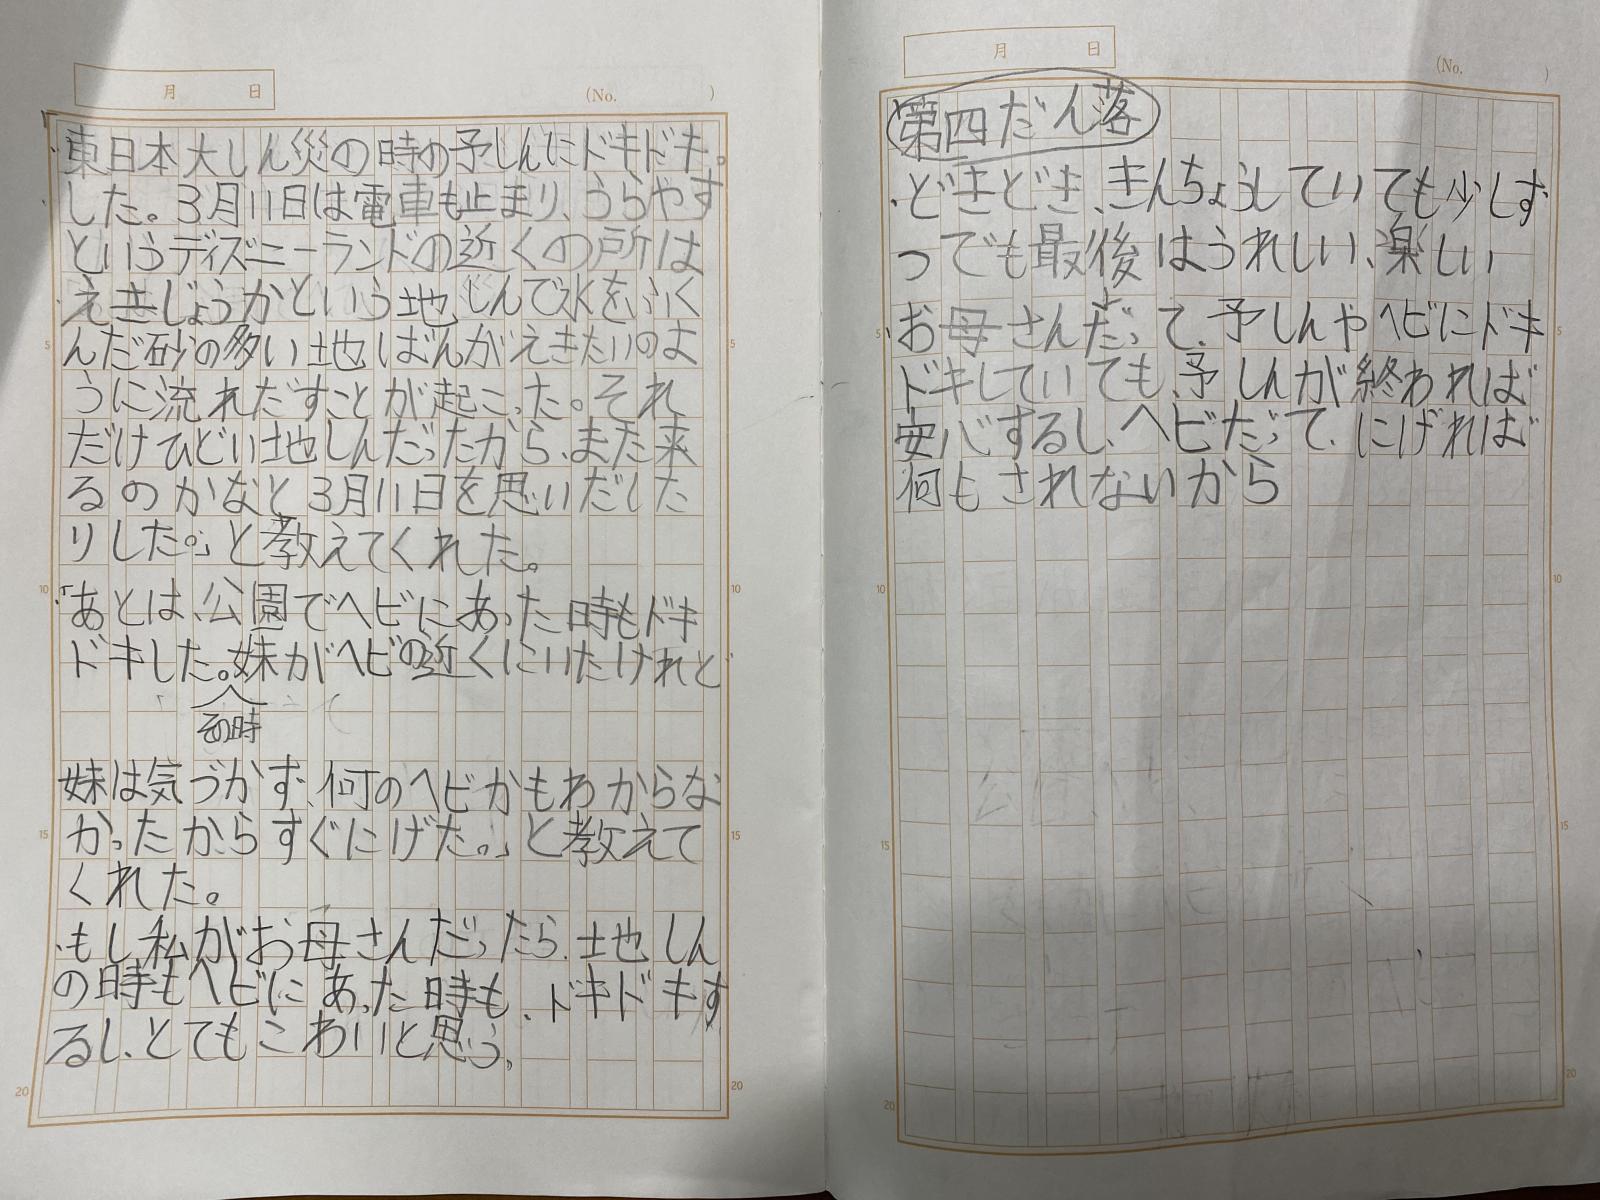 月 日
(No. )
東日本大しん災の時の予しんにドキドキ。
した。3月11日は電車も止まり、うらやす
というディズニーランドの近くの所は
えきじょうかという地しんで水をふく
んだ砂の多い地ばんがえきたいのよ
うに流れだすことが起こった。それ
だけひどい地しんだったから、また来
るのかなと3月11日を思いだした
りした。」と教えてくれた。
「あとは、公園でヘビにあった時もドキ
ドキした。妹がヘビの近くにいたけれと
その時
妹は気づかず、何のヘビかもわからな
かったからすぐににげた。」と教えて
くれた。
・もし私がお母さんだったら、地しん
の時もヘビにあった時も、ドキドキす
るし、とてもこわいと思う。
5
10
15
20
5
10
15
20
月 日
(No. )
第四だん落
・どきどき、きんちょうしていても少しず
つでも最後はうれしい、楽しい
お母さんだって、予しんやヘビにドキ
ドキしていても、予しんが終われば
安心するし、ヘビだって、にげれば
何もされないから
5
10
15
20
5
10
15
20